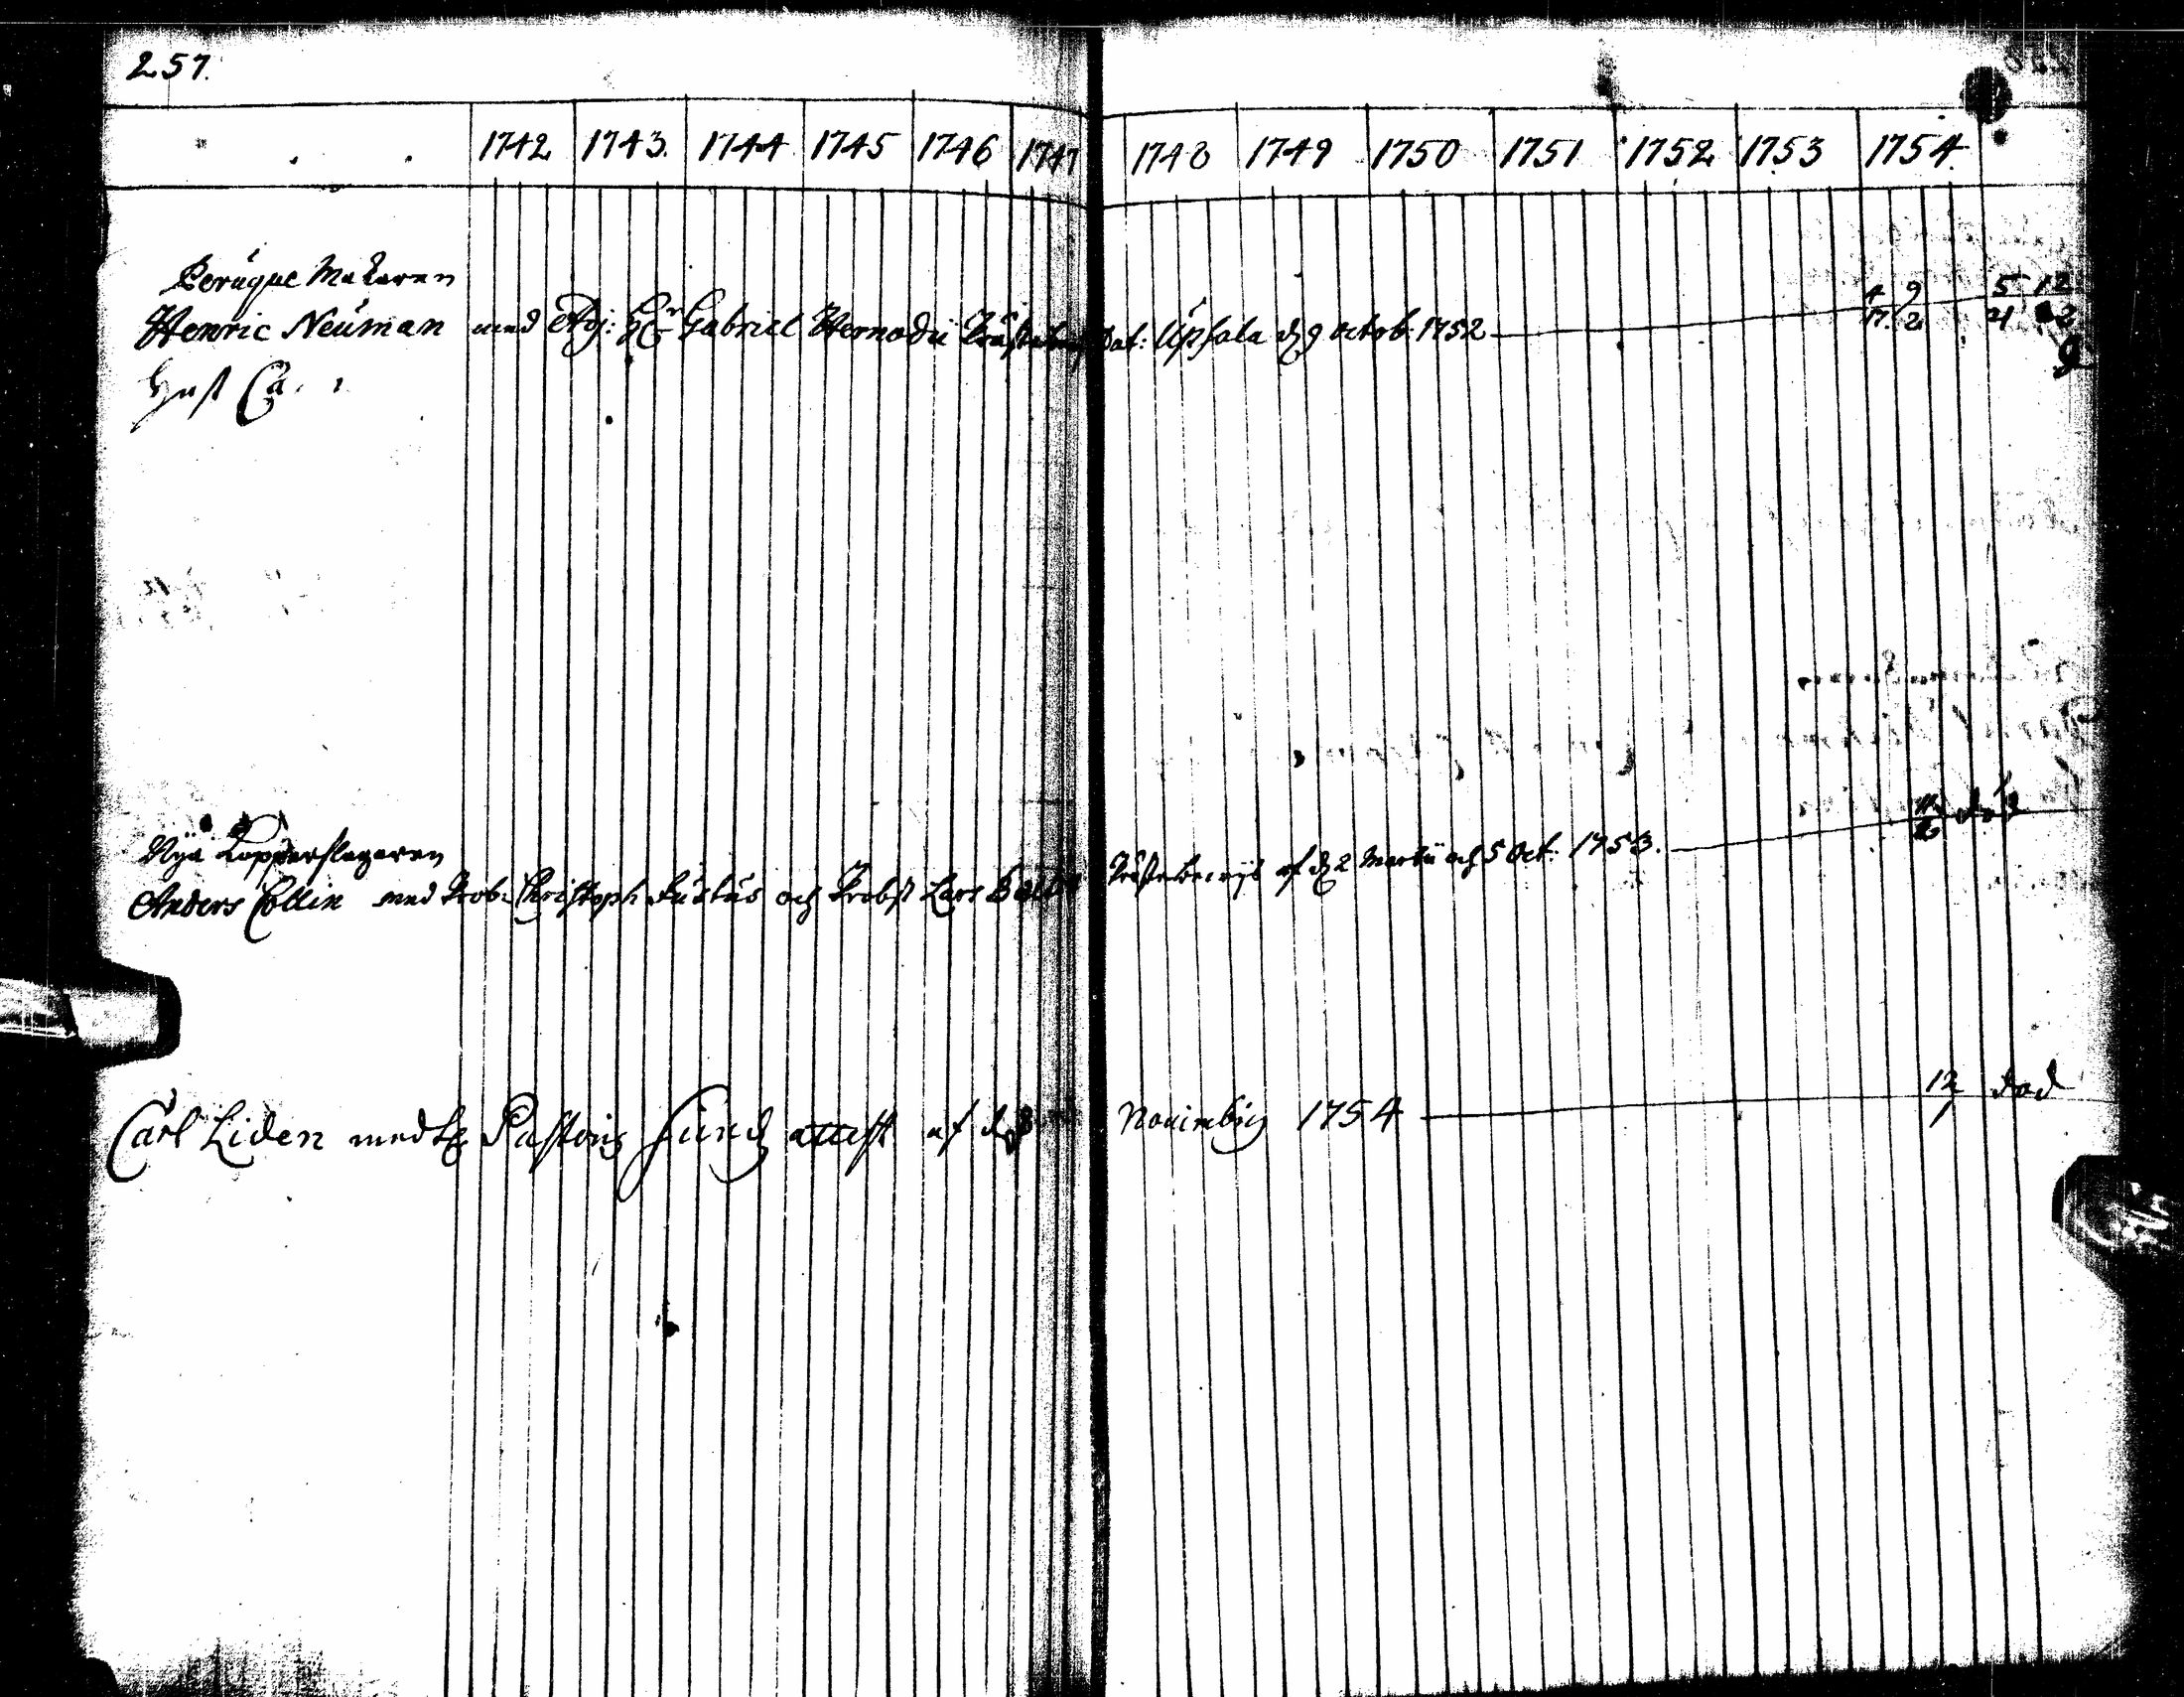 257.
1742 1743. 1744 1745 1746 1747 1748 1749 1750 1751 1752 1753 1754.
Peruque Makaren
Henric Neuman med Adj: Hr Gabriel Hernodii Dat: Upsala d 9 octob 1752 4 9 5 12
17. 2 21 2
Hust Ca
Nya Kopparslagaren
Anders Collin med Prob: Christoph och Probst Lars Prästebewijs af d 2 Martii och 5 Oct: 1753. död
Carl Liden med Pastoris Lund attest af d 8 Novembris 1754 12 död
1